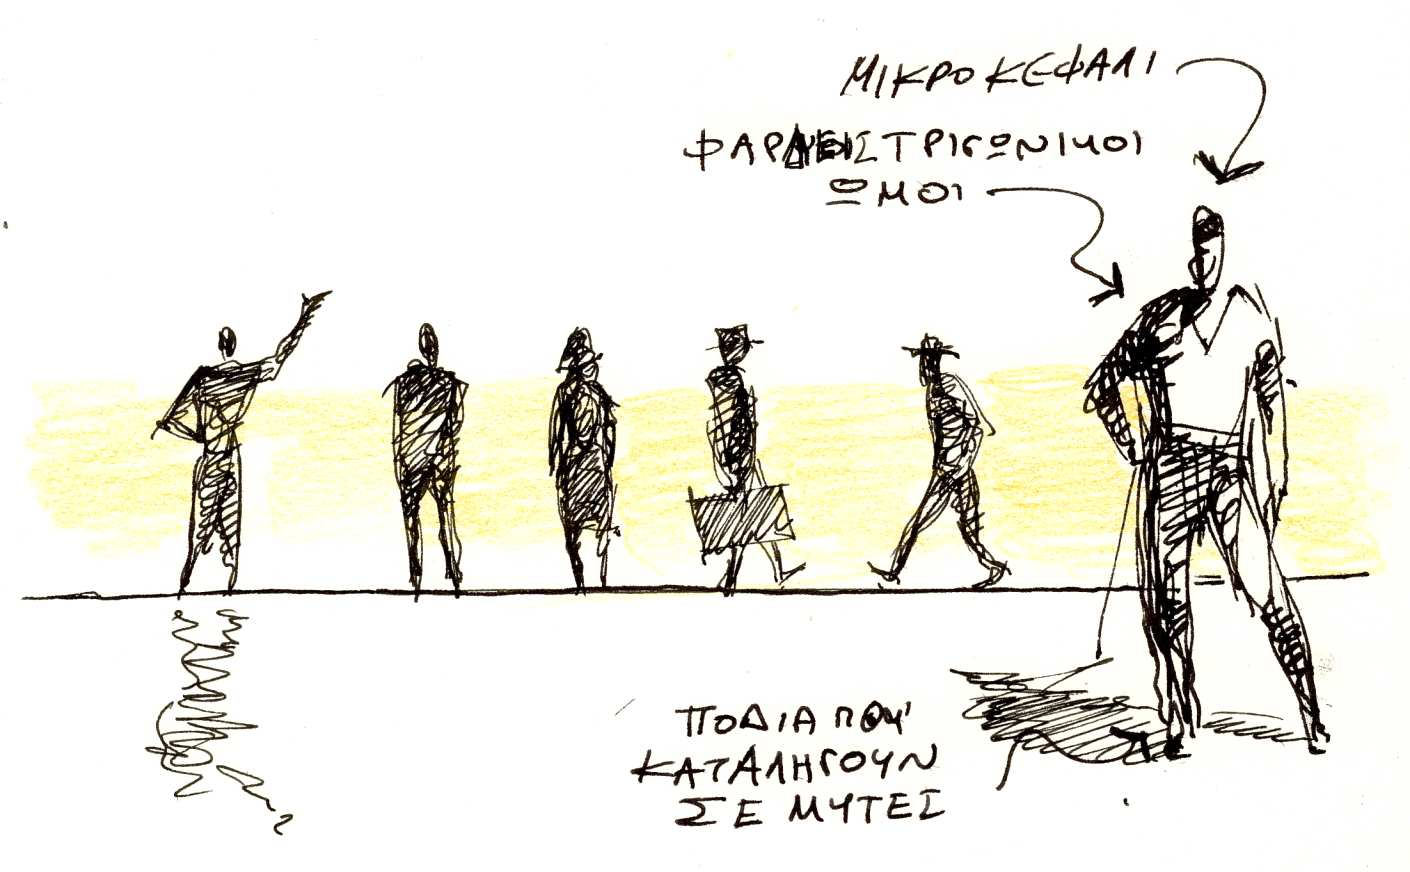 ΜΙΚΡΟ ΚΕΦΑΛΙ
ΦΑΡΔΕΙΣ ΤΡΙΓΩΝΙΚΟΙ
ΩΜΟΙ
ΠΟΔΙΑ ΠΟΥ
ΚΑΤΑΛΗΓΟΥΝ
ΣΕ ΜΥΤΕΣ